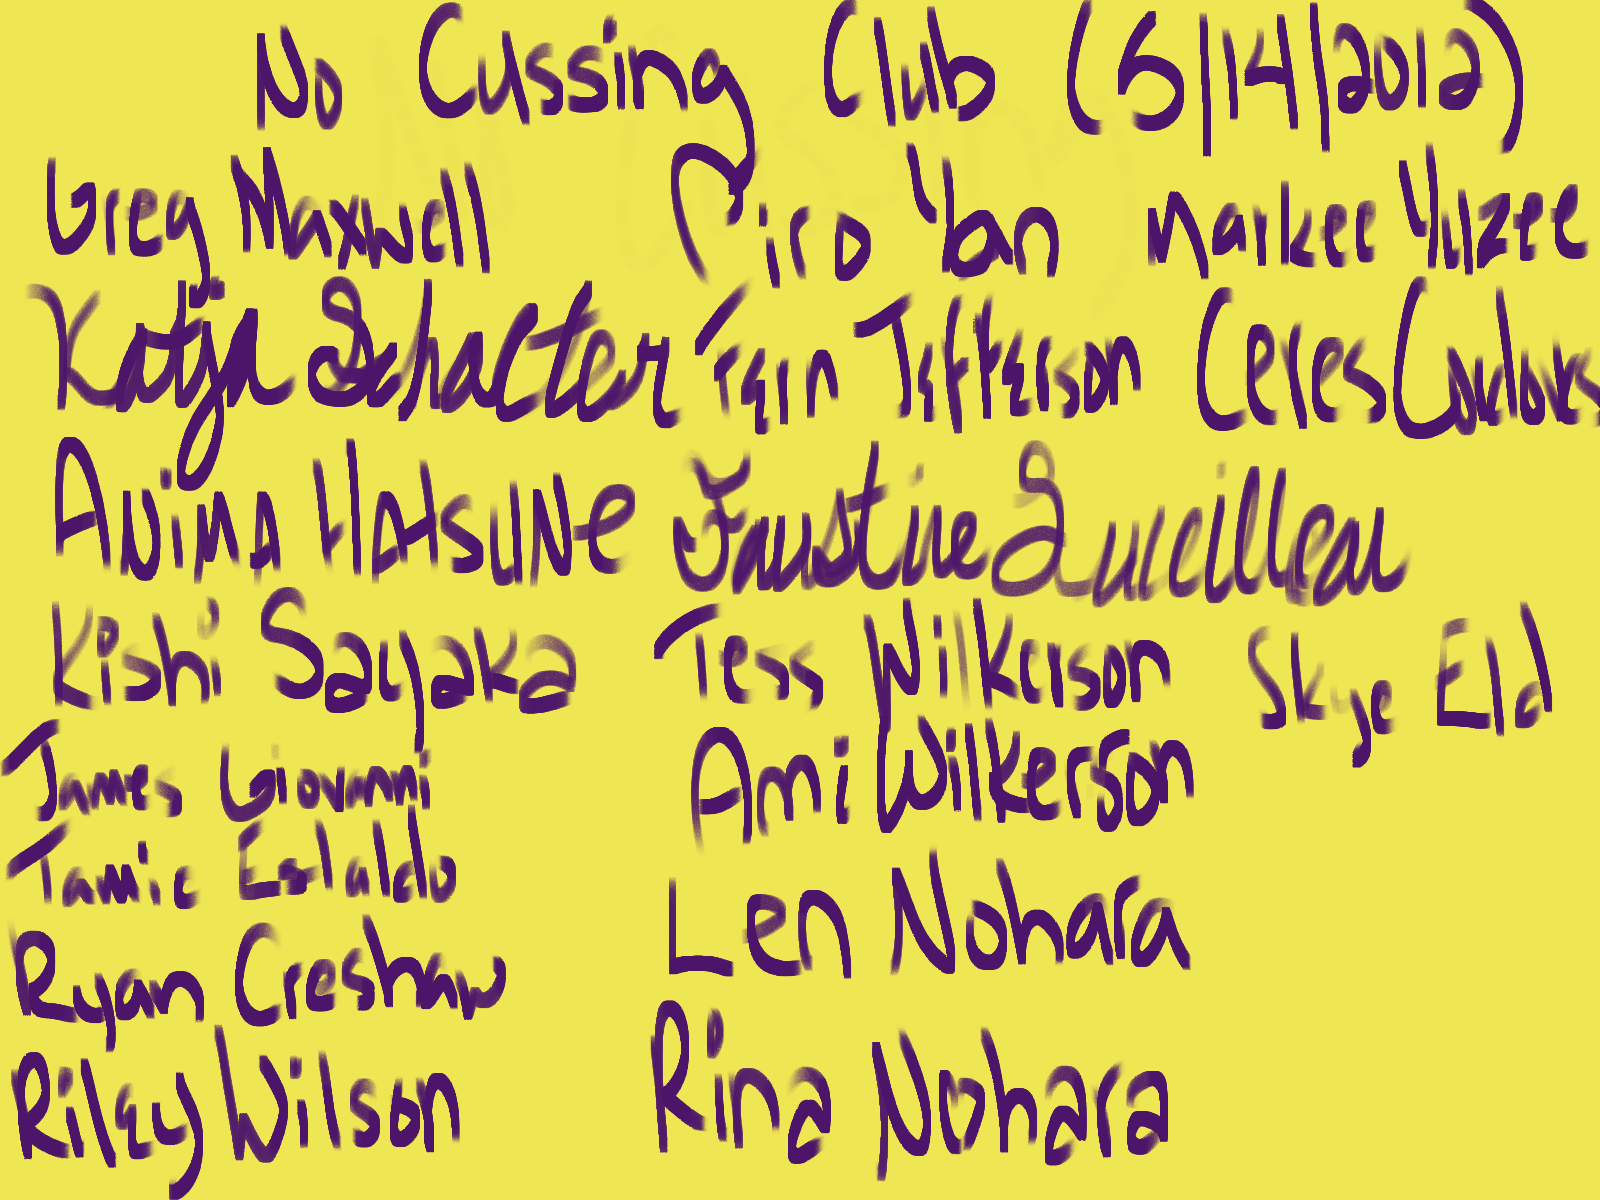 No Cussing Club (5/14/2012)
Greg Maxwell Ciro Yan Markee Yilzee
Katja Schacter Tern Jefferson Ceres
Anima Hatsune Faustine Lucilleau
Kishi Sayaka Tess Wilkerson Skye Eld
James Giovanni Ami Wilkerson
Tamic Len Nohara
Ryan Creshaw
Riley Wilson Rina Nohara